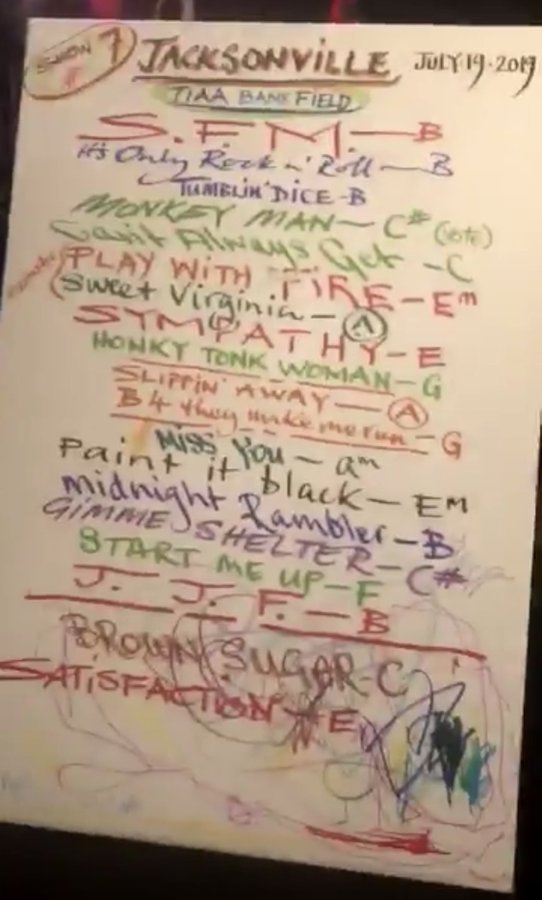 SHOW 7 JACKSONVILLE JULY·19·2019
#
TIAA BANK FIELD
S.F.M. — B
it's Only Rock n' Roll — B
TUMBLIN' DICE - B
MONKEY MAN — C# (vote)
Can't Always Get - C
PLAY WITH FIRE - Em
Sweet Virginia - A
SYMPATHY - E
HONKY TONK WOMAN - G
SLIPPIN' AWAY — A
B4 they make me run - G
Miss You - am
Paint it black - Em
midnight Rambler - B
GIMME SHELTER - C#
START ME UP - F
J. J. F. - B
BROWN SUGAR - C
SATiSFACTION - E